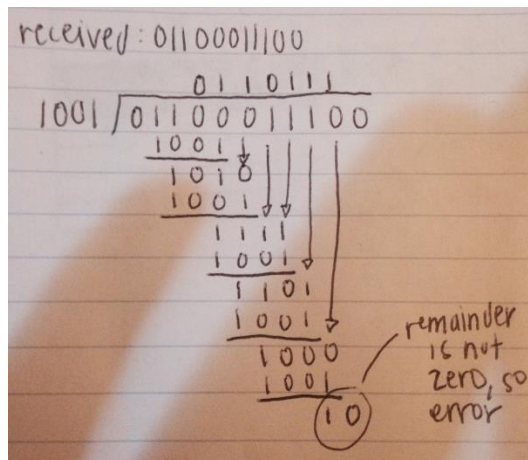 received: 01100011100
0110111
1001 01100011100
1001
1010
1001
1111
1001
1101
1001
1000
1001
10
remainder
is not
zero, so
error